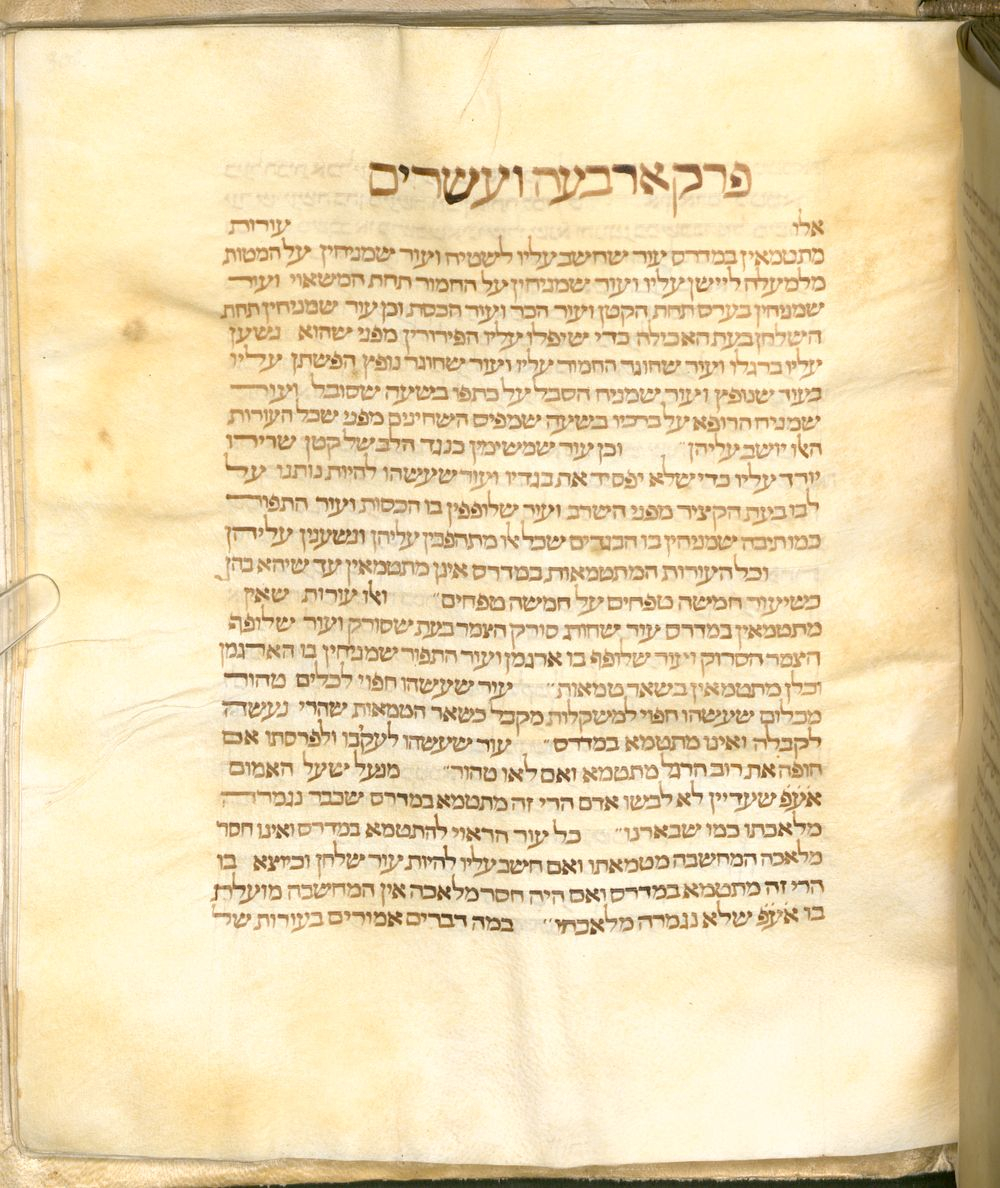 פרק ארבעה ועשרים
אלו עורות
מתטמאין במדרס עור שחישב עליו לשטיח ועור שמניחין על המטות
מלמעלה ליישן עליו ועור שמניחין על החמור תחת המשאוי ועור
שמניחין בערס תחת הקטן ועור הכר ועור הכסת וכן עור שמניחין תחת
השלחן בעת האכולה כדי שיפלו עליו הפירורין מפני שהוא נשען
עליו ברגלו ועור שחוגר החמור עליו ועור שחוגר נופץ הפשתן עליו
בעוד שנופץ ועור שמניח הסבל על כתפו בשעה שסובל ועור
שמניח הרופא על ברכיו בשעה שמפיס השחינים מפני שכל העורות
האלו יושב עליהן״ וכן עור שמשימין כנגד הלב של קטן שרירו
יורד עליו כדי שלא יפסיד את בגדיו ועור שעשהו להיות נותנו על
לבו בעת הקציר מפני השרב ועור שלופפין בו הכסות ועור התפור
כמו תיבה שמניחין בו הבגדים שכל אלו מתהפכין עליהן ונשענין עליהן
וכל העורות המתטמאות במדרס אינן מתטמאין עד שיהא בהן
כשיעור חמשה טפחים על חמשה טפחים״ ואלו עורות שאין
מתטמאין במדרס עור שחותן סורק הצמר בעת שסורק ועור שלופף
הצמר הסרוק ועור שלופף בו ארגמן ועור התפור שמניחין בו הארגמן
וכלן מתטמאין בשאר טמאות״ עור שעשהו חפוי לכלים טהור
מכלום שעשהו חפוי למשקלות מקבל כשאר הטמאות שהרי נעשה
לקבלה ואינו מתטמא במדרס״ עור שעשהו לעקבו ולפרסתו אם
חופה את רוב הרגל מתטמא ואם לאו טהור״ מנעל שעל האמום
אע״פ שעדיין לא לבשו אדם הרי זה מתטמא במדרס שכבר נגמרה
מלאכתו כמו שבארנו״ כל עור הראוי להתטמא במדרס ואינו חסר
מלאכה המחשבה מטמאתו ואם חישב עליו להיות עור שלחן וכיוצא בו
הרי זה מתטמא במדרס ואם היה חסר מלאכה אין המחשבה מועלת
בו אע״פ שלא נגמרה מלאכתו״ במה דברים אמורים בעורות של